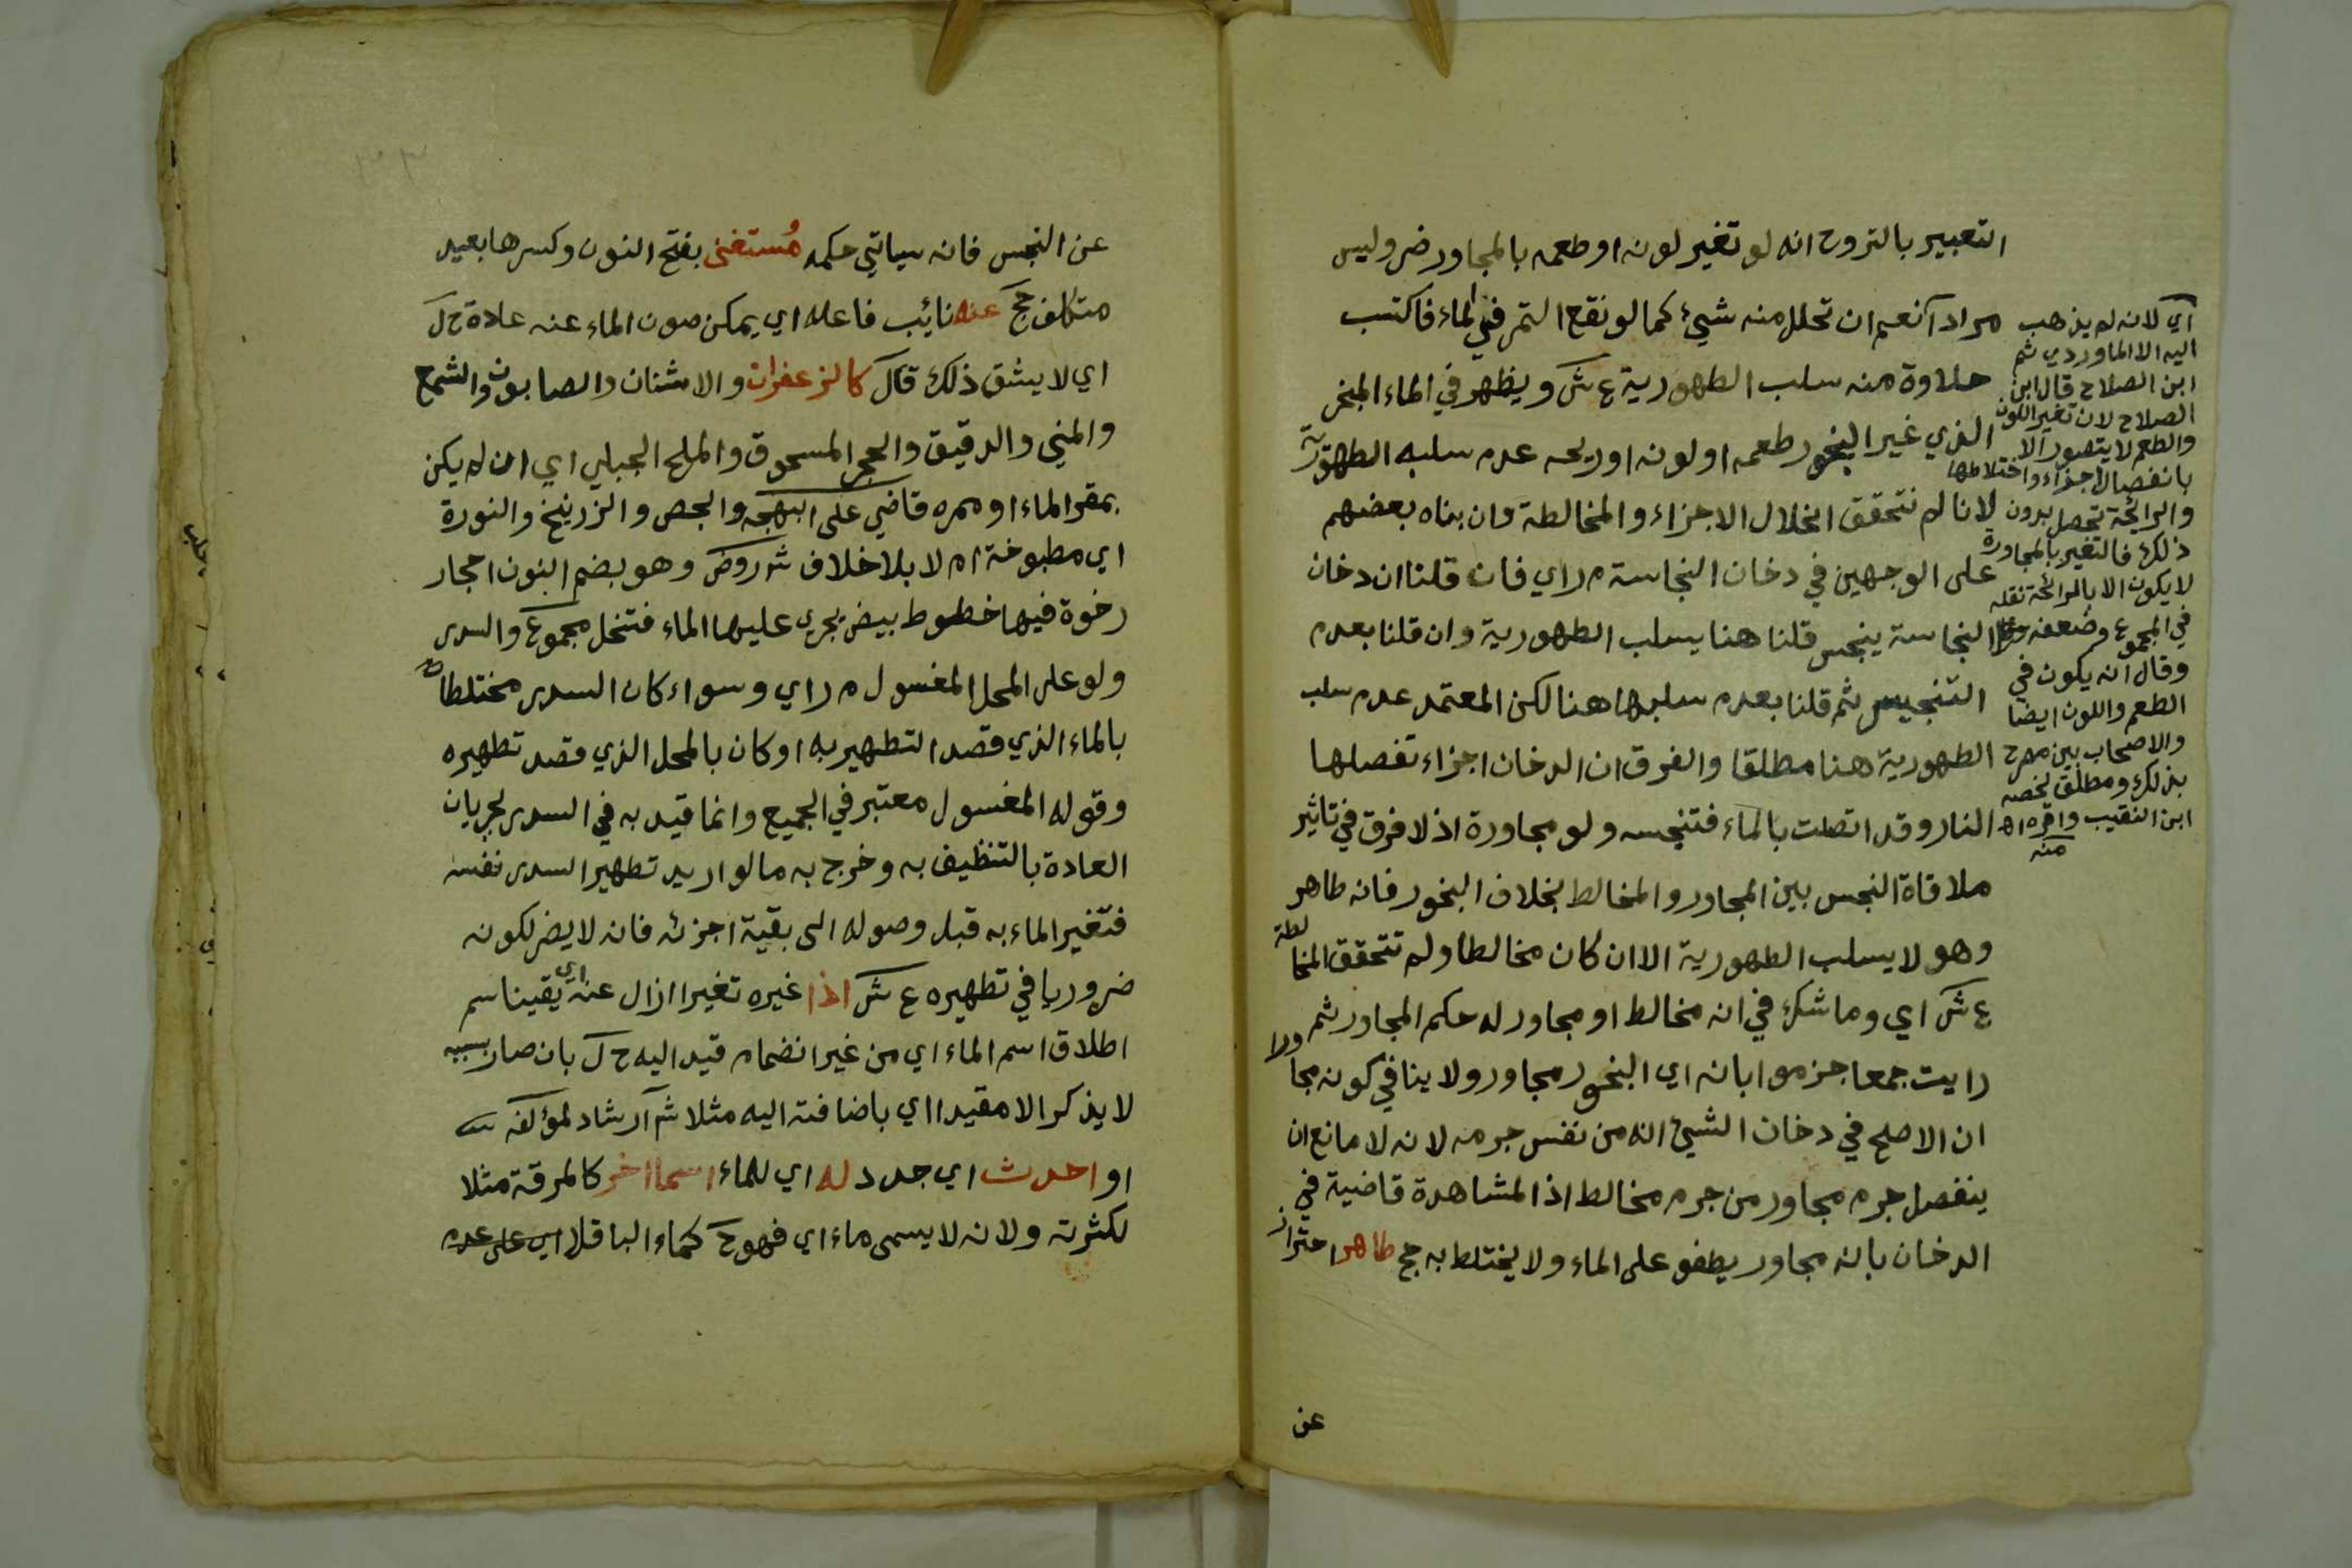 التعبير بالتروح انه لو تغير لونه او طعمه بالمجاور ضر وليس
مرادا نعم ان تحلل منه شيئ كما لو نقع التمر في الماء فاكتسب
حلاوة منه سلب الطهورية ع ش ويظهر في الماء المبخر
الذي غير البخور طعمه او لونه او ريحه عدم سلبه الطهورية
لانا لم نتحقق انحلال الاجزاء والمخالطة وان بناه بعضهم
على الوجهين في دخان النجاسة م ر اي فان قلنا ان دخان
النجاسة ينجس قلنا هنا يسلب الطهورية وان قلنا بعدم
التنجيس ثم قلنا بعدم سلبها هنا لكن المعتمد عدم سلب
الطهورية هنا مطلقا والفرق ان الدخان اجزاء تفصلها
النار وقد اتصلت بالماء فتنجسه ولو مجاورة اذ لا فرق في تاثير
ملاقاة النجس بين المجاور والمخالط بخلاف البخور فانه طاهر
وهو لا يسلب الطهورية الا ان كان مخالطا ولم تتحقق المخالطة
ع ش اي وما شك في انه مخالط او مجاور له حكم المجاور ثم
رايت جمعا جزموا بانه اي البخور مجاور ولا ينافي كونه مجاورا
ان الاصح في دخان الشيئ انه من نفس جرمه لانه لا مانع ان
ينفصل جرم مجاور من جرم مخالط اذ المشاهدة قاضية في
الدخان بانه مجاور يطفو على الماء ولا يختلط به حج طاهر احتراز
عن
اي لانه لم يذهب
اليه الا الماوردي ثم
ابن الصلاح قال ابن
الصلاح لان تغير اللون
والطعم لا يتصور الا
بانفصال اجزاء واختلاطها
والرائحة تحصل بدون
ذلك فالتغير بالمجاورة
لا يكون الا بالرائحة نقله
في المجموع وضعفه
وقال انه يكون في
الطعم واللون ايضا
والاصحاب بين مصرح
بذلك ومطلق لخصه
ابن النقيب واقره اه
منه
عن النجس فانه سياتي حكمه مُستغنى بفتح النون وكسرها بعيد
متكلف حج عنه نائب فاعله اي يمكن صون الماء عنه عادة ح ل
اي لا يشق ذلك ق ل كالزعفران والاشنان والصابون والشمع
والمني والدقيق والحجر المسحوق والملح الجبلي اي ان لم يكن
بمقر الماء او ممره قاضي على البهجه والجص والزرنيخ والنورة
اي مطبوخة ام لا بلا خلاف ش روض وهو بضم النون احجار
رخوة فيها خطوط بيض يجري عليها الماء فتنحل مجموع والسدر
ولو على المحل المغسول م ر اي وسواء كان السدر مختلطا
بالماء الذي قصد التطهير به او كان بالمحل الذي قصد تطهيره
وقوله المغسول معتبر في الجميع وانما قيد به في السدر لجريان
العادة بالتنظيف به وخرج به ما لو اريد تطهير السدر نفسه
فتغير الماء به قبل وصوله الى بقية اجزئه فانه لا يضر لكونه
ضروريا في تطهيره ع ش اذا غيره تغيرا ازال عنه اي يقينا سم
اطلاق اسم الماء اي من غير انضمام قيد اليه ح ل بان صار بسببه
لا يذكر الا مقيدا اي باضافته اليه مثلا ش ارشاد لمؤلفه
او احدث اي جدد له اي للماء اسما اخر كالمرقة مثلا
لكثرته ولانه لا يسمى ماء اي فهو ح كماء الباقلا اي على عدم